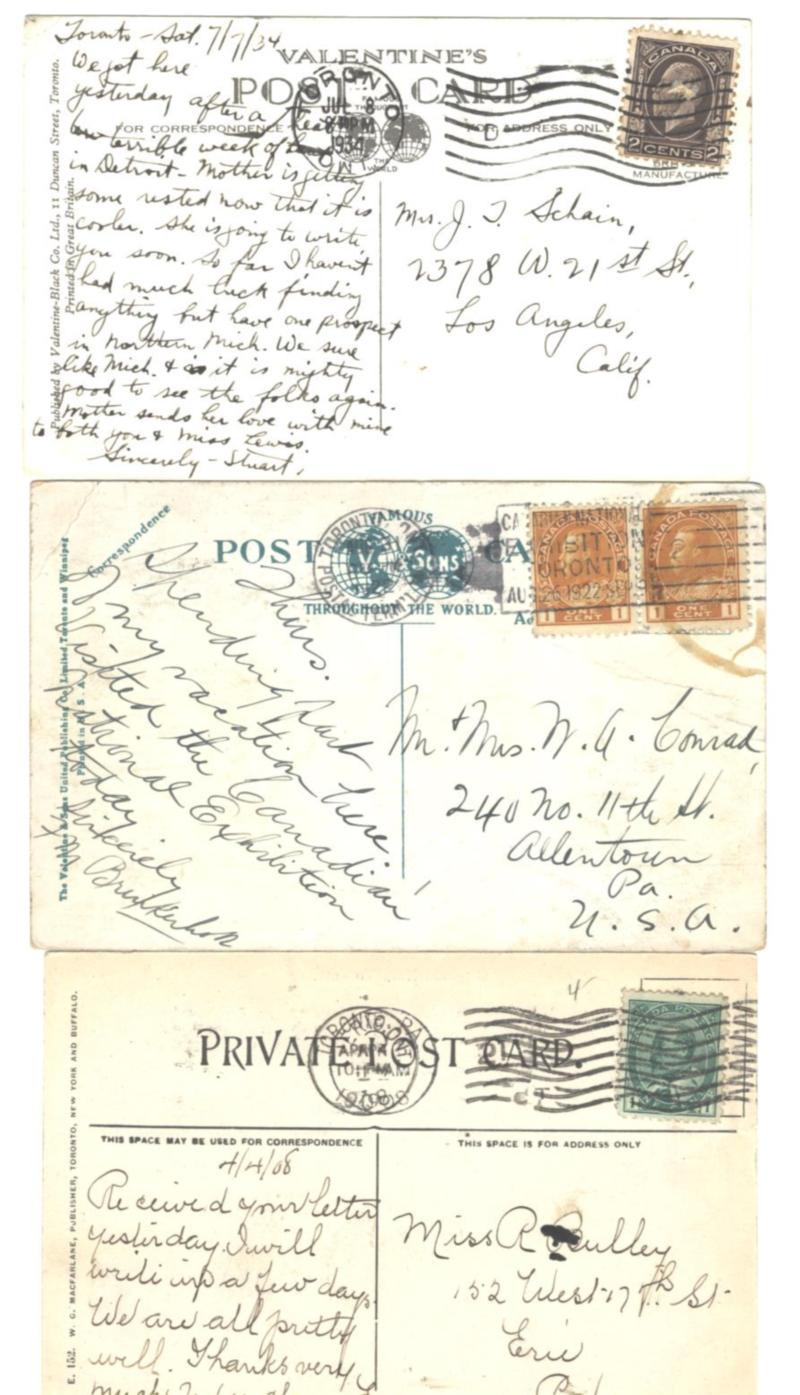 Toronto - Sat. 7/7/34
We got here
yesterday after a
terrible week of heat
in Detroit - Mother is getting
some rested now that it is
cooler. She is going to write
you soon. So far I haven't
had much luck finding
anything but have one prospect
in Northern Mich. We sure
like Mich. & it is mighty
good to see the folks again.
Mother sends her love with mine
to both you & Miss Lewis.
Sincerely - Stuart,
Published by Valentine-Black Co. Ltd., 11 Duncan Street, Toronto.
Printed in Great Britain.
VALENTINE'S
POST CARD
FOR CORRESPONDENCE
FOR ADDRESS ONLY
TORONTO
JUL 8
8 PM
1934
THE
WORLD
CANADA
2 CENTS 2
MANUFACTURE
Mrs. J. T. Schain,
2378 W. 21st St.,
Los Angeles,
Calif.
Correspondence
The Valentine & Sons United Publishing Co. Limited, Toronto and Winnipeg
Printed in U. S. A.
FAMOUS
POST CA
V. & Sons'
THROUGHOUT THE WORLD.
TORONTO
POSTAL TERMINAL
TORONTO
AU 26 1922 SEP
CANADA POSTAGE
1 ONE CENT 1
CANADA POSTAGE
1 ONE CENT 1
Spending part
of my vacation here.
Visited the Canadian
National Exhibition
today
Sinkerely
Mr. & Mrs. W. A. Conrad,
240 No. 11th St.
Allentown
Pa.
U. S. A.
E. 152. W. G. MACFARLANE, PUBLISHER, TORONTO, NEW YORK AND BUFFALO.
PRIVATE POST CARD.
TORONTO
1908
THIS SPACE MAY BE USED FOR CORRESPONDENCE
THIS SPACE IS FOR ADDRESS ONLY
4/4/08
Received your letter
yesterday. I will
write in a few days.
We are all pretty
well. Thanks very
much
Miss R Bulley
152 West 17th St
Erie